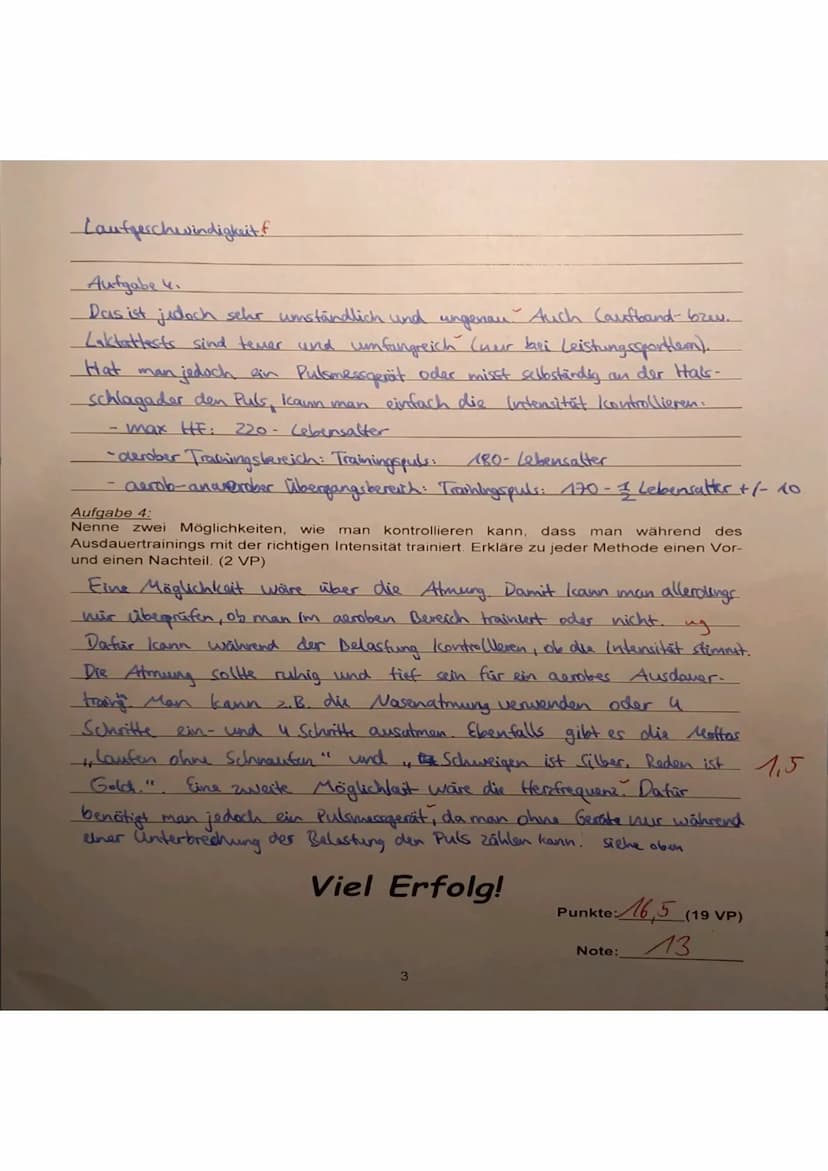 Laufgeschwindigkeit. f
Aufgabe 4.
Das ist jedoch sehr umständlich und ungenau Auch Laufband- bzw.
Laktattests sind teuer und umfangreich (nur bei Leistungssportlern).
Hat man jedoch ein Pulsmessgerät oder misst selbständig an der Hals-
schlagader den Puls, kann man einfach die Intensität kontrollieren:
- max HF: 220 - Lebensalter
- aerober Trainingsbereich: Trainingspuls: 180 - Lebensalter
- aerob-anaerober Übergangsbereich: Trainingspuls: 170 - 1/2 Lebensalter +/- 10
Aufgabe 4:
Nenne zwei Möglichkeiten, wie man kontrollieren kann, dass man während des
Ausdauertrainings mit der richtigen Intensität trainiert. Erkläre zu jeder Methode einen Vor-
und einen Nachteil. (2 VP)
Eine Möglichkeit wäre über die Atmung. Damit kann man allerdings
nur überprüfen, ob man im aeroben Bereich trainiert oder nicht. ug
Dafür kann während der Belastung kontrollieren, ob die Intensität stimmt.
Die Atmung sollte ruhig und tief sein für ein aerobes Ausdauer-
traing. Man kann z.B. die Nasenatmung verwenden oder 4
Schritte ein- und 4 Schritte ausatmen. Ebenfalls gibt es die Mottos
„Laufen ohne Schnaufen" und „Schweigen ist Silber, Reden ist 1,5
Gold.". Eine zweite Möglichkeit wäre die Herzfrequenz. Dafür
benötigt man jedoch ein Pulsmessgerät, da man ohne Geräte nur während
einer Unterbrechung der Belastung den Puls zählen kann. siehe oben
Viel Erfolg!
Punkte: 16,5 (19 VP)
Note: 13
3